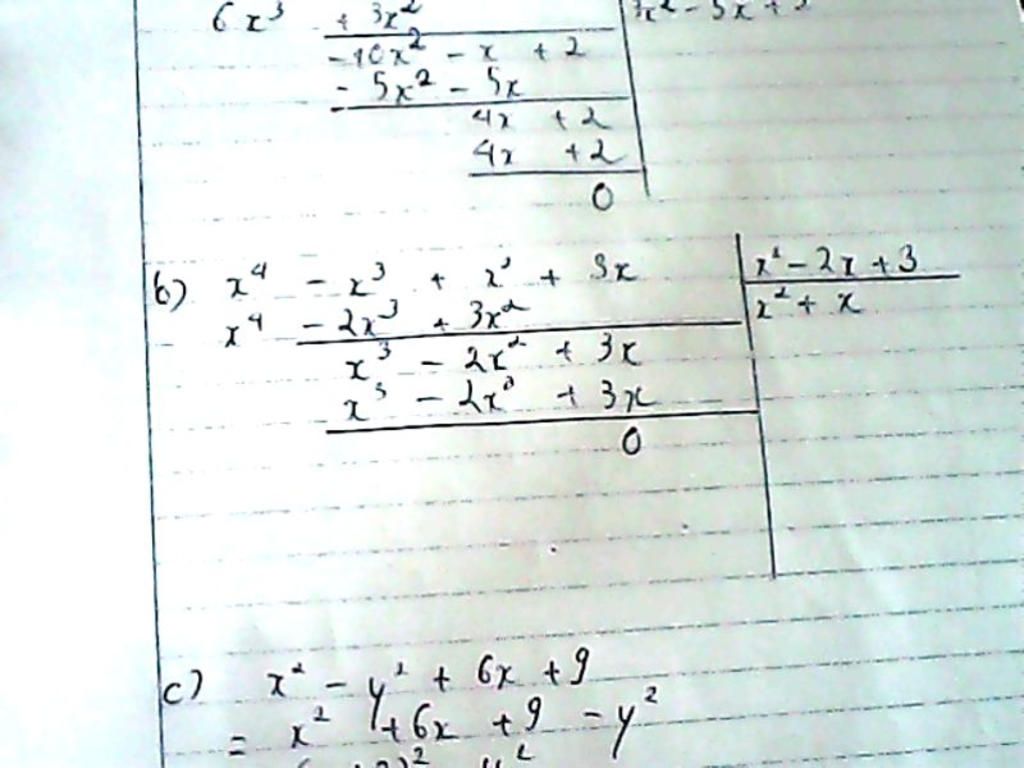 6x³ + 3x²
-10x² - x + 2
- 5x² - 5x
4x + 2
4x + 2
0
b) x⁴ - x³ + x² + 3x | x² - 2x + 3
x⁴ - 2x³ + 3x² | x² + x
x³ - 2x² + 3x
x³ - 2x² + 3x
0
c) x² - y² + 6x + 9
= x² + 6x + 9 - y²